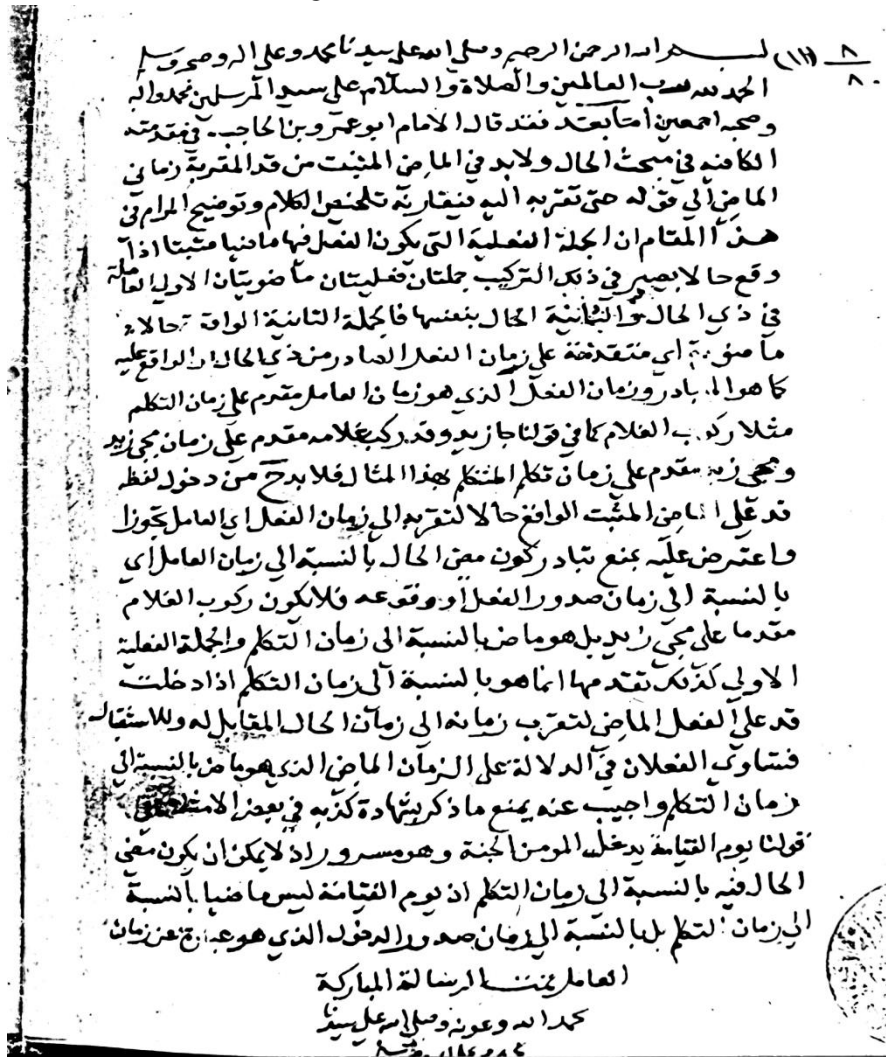 بسم الله الرحمن الرحيم وصلي الله علي سيدنا محمد وعلي اله وصحبه وسلم
٨
(١١)
٨٠
الحمد لله رب العالمين والصلاة والسلام علي سيد المرسلين محمد واله
وصحبه اجمعين أما بعد فقد قال الامام ابو عمرو بن الحاجب في مقدمته
الكافيه في مبحث الحال ولابد في الماضي المثبت من قد المقربة زماني
الماضي الي قوله حتي تقربه اليه تلخيص الكلام وتوضيح المرام في
هذا المقام ان الجملة الفعلية التي يكون الفعل فيها ماضيا مثبتا اذا
وقع حالا يصير في ذلك التركيب جملتان فعليتان ماضويتان الاولي العاملة
في ذي الحال والثانية الحال بنفسها فالجملة الثانية الواقعة حالا
ماضوية اي متقدمة علي زمان الفعل الصادر من ذي الحال او الواقع عليه
كما هو المبادر وزمان الفعل الذي هو زمان العامل مقدم علي زمان التكلم
مثلا ركوب الغلام كما في قولنا جا زيد وقد ركب غلامه مقدم علي زمان مجي زيد
ومجي زيد مقدم علي زمان تكلم المتكلم بهذا المثال فلابد ح من دخول لفظ
قد علي الماضي المثبت الواقع حالا لتقربه الي زمان الفعل اي العامل تجوزا
واعترض عليه بمنع تبادر كون مضي الحال بالنسبة الي زمان العامل اي
بالنسبة الي زمان صدور الفعل او وقوعه فلا يكون ركوب الغلام
مقدما علي مجي زيد بل هو ماض بالنسبة الى زمان التكلم والجملة الفعلية
الاولي كذلك تقدمها انما هو بالنسبة الي زمان التكلم اذا دخلت
قد علي الفعل الماضي لتقرب زمانه الي زمان الحال المقابل له وللاستقبال
فتساوي الفعلان في الدلالة علي الزمان الماضي الذي هو ماض بالنسبة الي
زمان التكلم واجيب عنه بمنع ما ذكر بشهادة كذبه في بعض الامثلة
قولنا يوم القيامة يدخل المومن الجنة وهو مسرور اذ لا يمكن ان يكون مضي
الحال فيه بالنسبة الى زمان التكلم اذ يوم القيامة ليس ماضيا بالنسبة
الي زمان التكلم بل بالنسبة الي زمان صدور الدخول الذي هو عبارة عن زمان
العامل تمت الرسالة المباركة
بحمد الله وعونه وصلي الله علي سيدنا